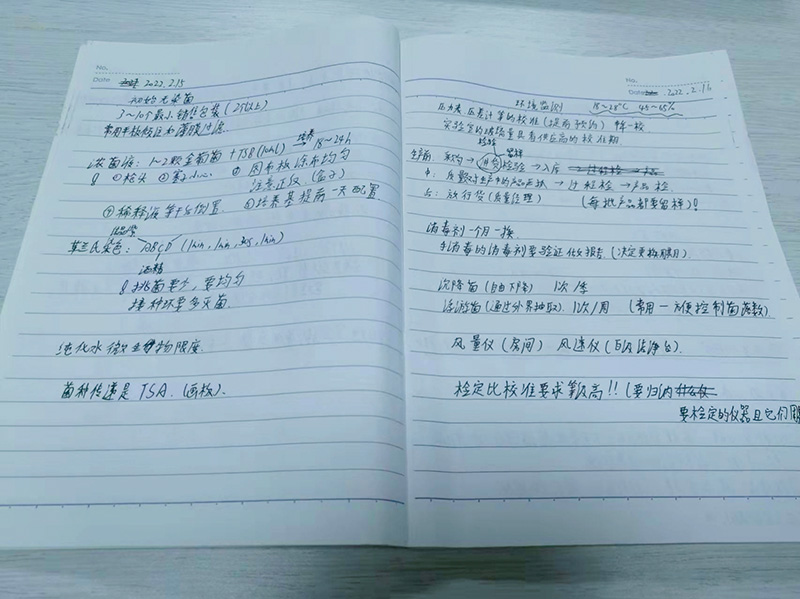 No.
Date 2022.2.15
初始无染菌
3~10个最小销售包装(25以上)
常用平板倾注和薄膜过滤.
浓菌液: 1-2颗金葡菌 +TSB(10ml) 培养→ 18~24h
① 枪头 ② 塞子 ③ 固体板 涂布均匀
注意正反(盒子)
④ 稀释液等于当天配置. ⑤ 培养基提前一天配置
结晶紫
革兰氏染色: ABCD (1min, 1min, 30s, 1min)
酒精
挑菌要少,要均匀
接种环要多灭菌.
纯化水 微生物限度.
菌种传递是 TSA.(画板).
No.
Date 2022.2.16
环境监测 18~28℃ 45~65%
压力表.压差计等的校准(提前预约) 一年一校
实验室的玻璃量具有供应商的校准期
检验 留样
生产前 采购→进货检验→入库
中: 质量对生产中的产品巡检 → 过程检 → 产品检.
后: 放行货(质量经理) (每批产品都要留样)!
消毒剂一个月一换
手消毒的消毒剂要验证 做报告 (决定更换期日)
沉降菌(自由下降) 1次/季
浮游菌(通过外界抽取). 1次/周 (常用一方便控制菌落数)
风量仪(房间) 风速仪(百级洁净台).
检定比校准要求等级高!! (要归纳
要检定的仪器且它们